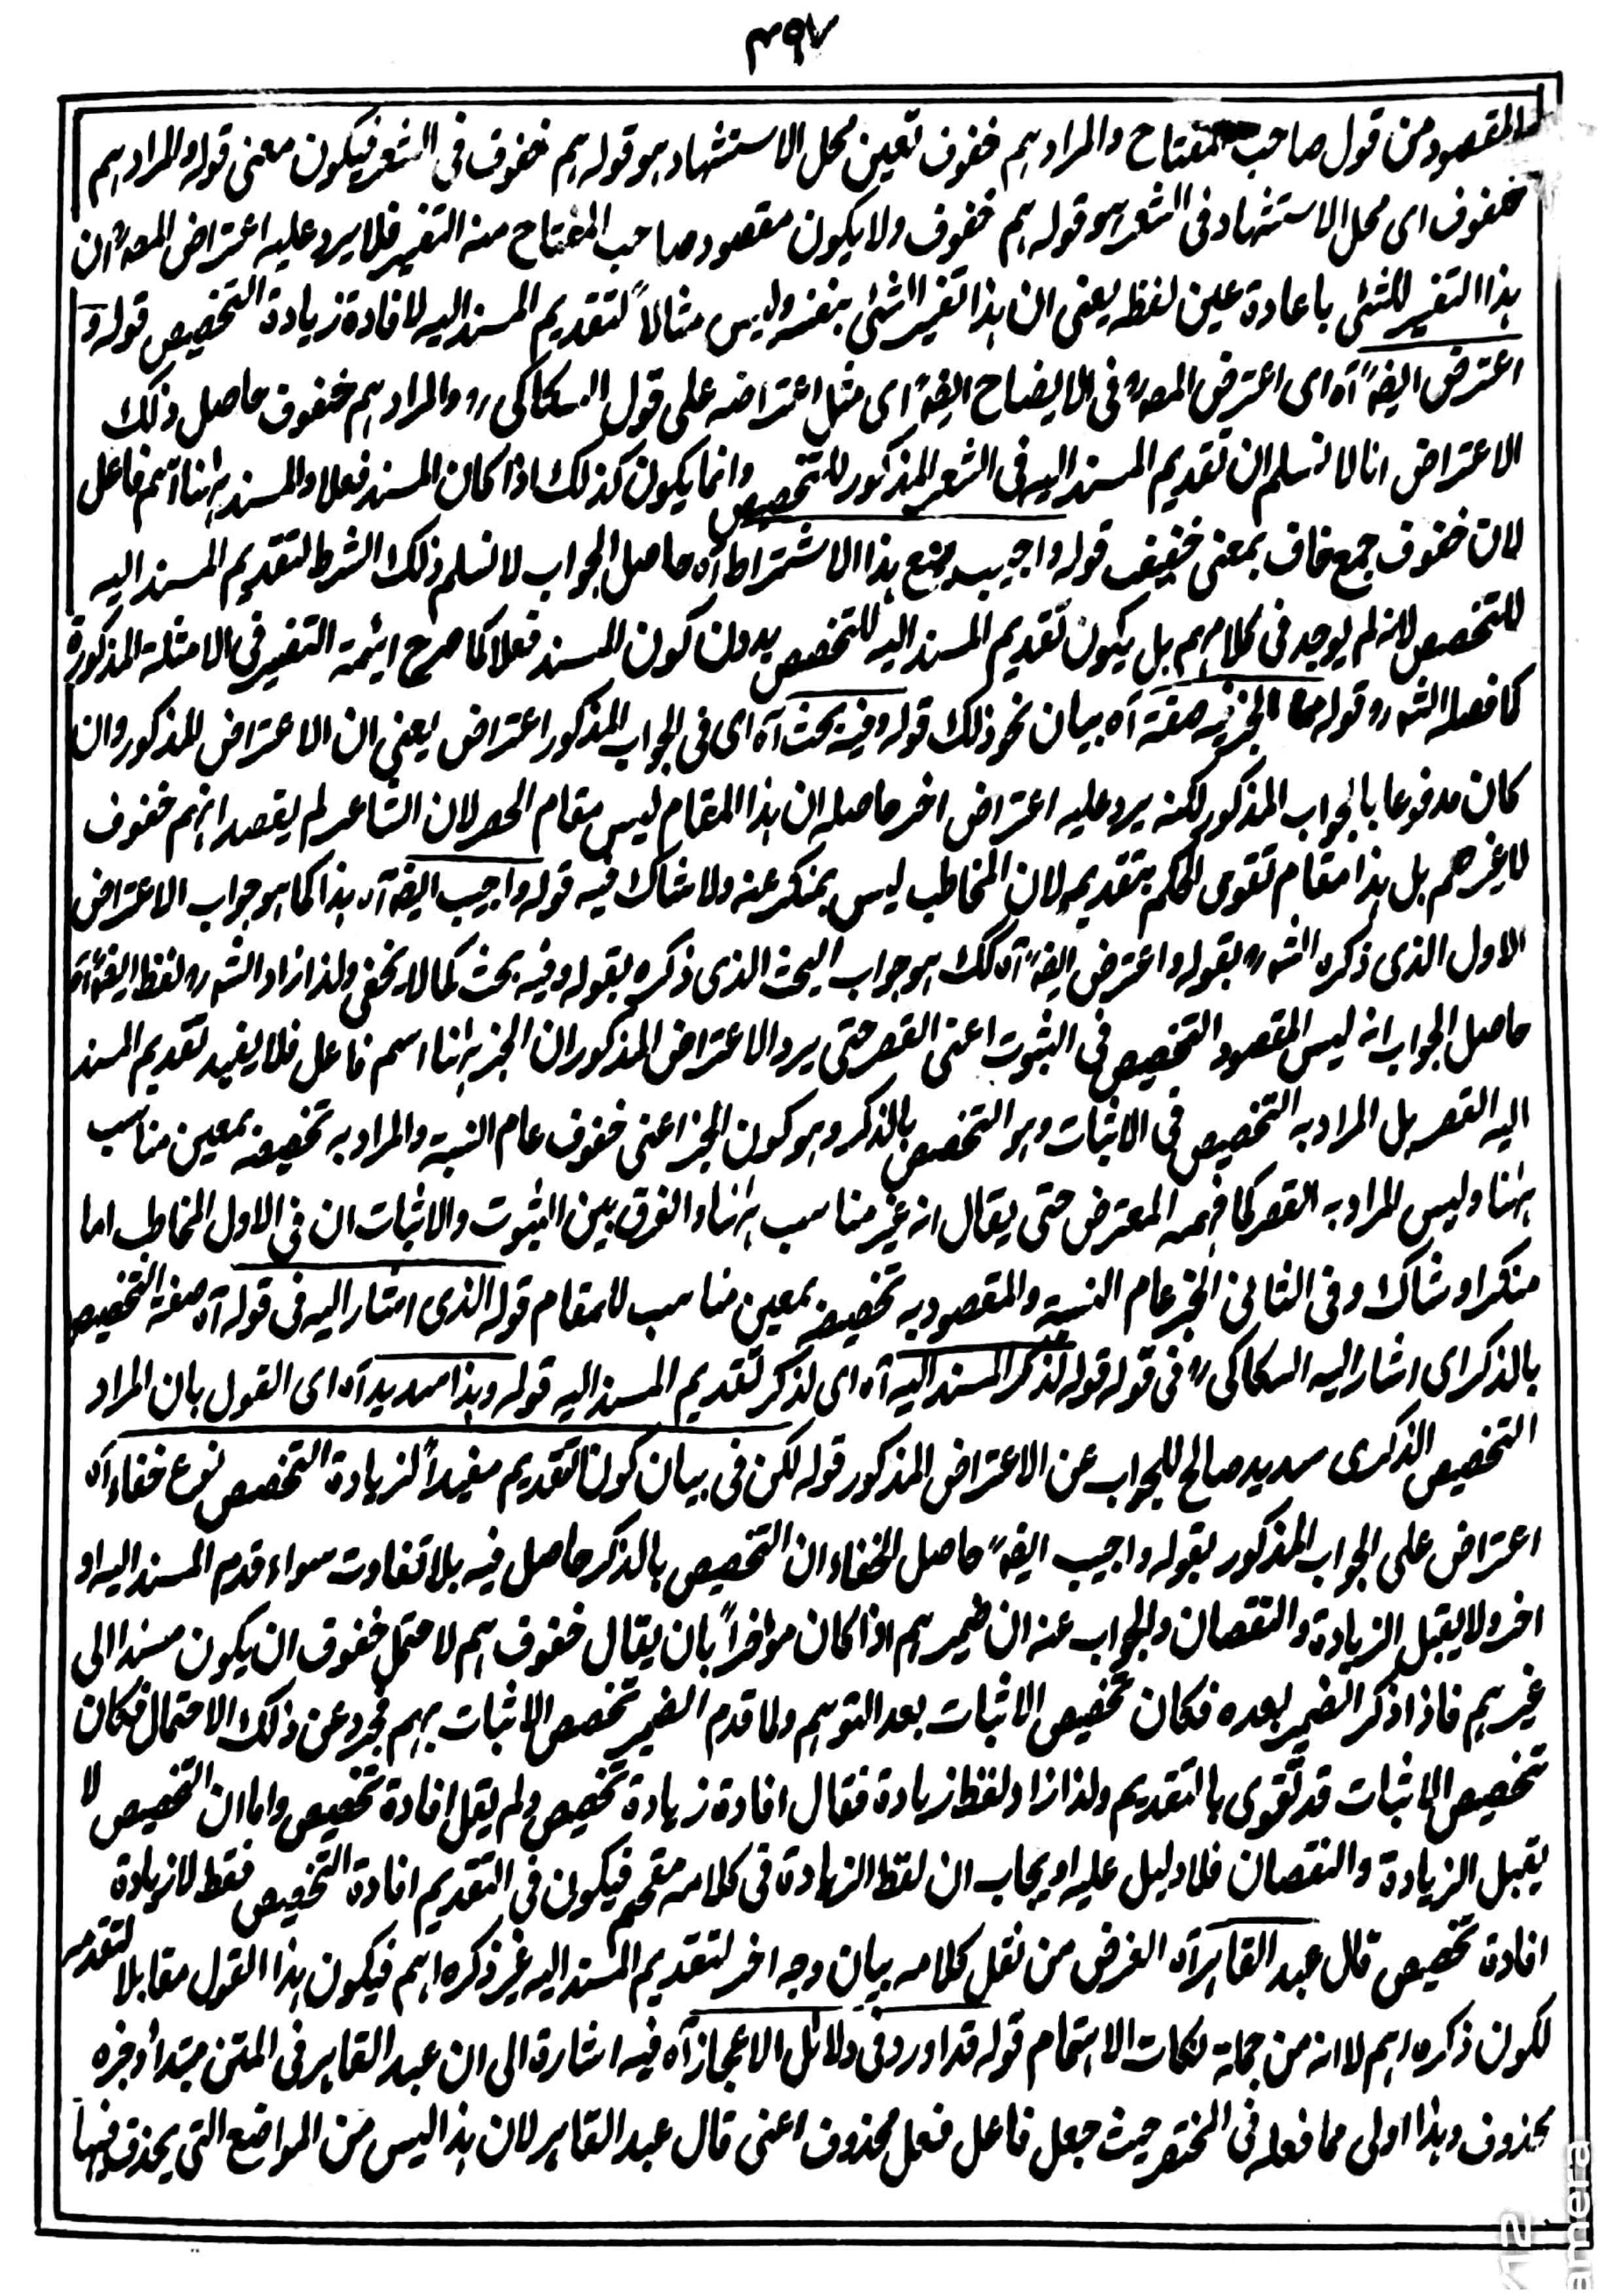 ٣٩٧
المقصود من قول صاحب المفتاح والمراد هم خفوف تعين محل الاستشهاد هو قوله هم خفوف فى الشعر فيكون معنى قوله والمراد هم
خفوف اى محل الاستشهاد فى الشعر هو قوله هم خفوف ولا يكون مقصود صاحب المفتاح منه التفسير فلا يرد عليه اعتراض المصؒ ان
هذا التفسير للشئى باعادة عين لفظه يعنى ان هذا تفسير الشئى بنفسه وليس مثالاً لتقديم المسند اليه لافادة زيادة التخصيص قوله و
اعترض ايضًا آه اى اعترض المصؒ فى الايضاح ايضًا اى مثل اعتراضه على قول السكاكىؒ والمراد هم خفوف حاصل ذلك
الاعتراض انا لا نسلم ان تقديم المسند اليه فى الشعر المذكور للتخصيص وانما يكون كذلك اذا كان المسند فعلا والمسند ههنا اسم فاعل
لان خفوف جمع خاف بمعنى خفيف قوله واجيب بمنع هذا الاشتراط آه حاصل الجواب لا نسلم ذلك الشرط لتقديم المسند اليه
للتخصيص لانه لم يوجد فى كلامهم بل يكون تقديم المسند اليه للتخصيص بدون كون المسند فعلا كما صرح ايئمة التفسير فى الامثلة المذكورة
كا فصله الشهؒ وقوله مما الخبر فيه صفة آه بيان نحو ذلك قوله وفيه بحث آه اى فى الجواب المذكور اعتراض يعنى ان الاعتراض المذكور وان
كان مدفوعا بالجواب المذكور لكنه يرد عليه اعتراض اخر حاصله ان هذا المقام ليس مقام الحصر لان الشاعر لم يقصد انهم خفوف
لا غيرهم بل هذا مقام تقوى الحكم بتقديمه لان المخاطب ليس بمنكر عنه ولا شاك فيه قوله واجيب ايضًا آه هذا كما هو جواب الاعتراض
الاول الذى ذكره الشهؒ بقوله واعترض ايضًا آه كك هو جواب البحث الذى ذكره بقوله وفيه بحث كما لا يخفى ولذا زاد الشهؒ لفظ ايضًا آه
حاصل الجواب انه ليس المقصود التخصيص فى الثبوت اعنى القصر حتى يرد الاعتراض المذكور ان الخبر ههنا اسم فاعل فلا يفيد تقديم المسند
اليه القصر بل المراد به التخصيص فى الاثبات وهو التخصيص بالذكر وهو كون الخبر اعنى خفوف عام النسبة والمراد به تخصيصه بمعين مناسب
ههنا وليس المراد به القصر كما فهمه المعترض حتى يقال انه غير مناسب ههنا والفرق بين الثبوت والاثبات ان فى الاول المخاطب اما
منكر او شاك وفى الثانى الخبر عام النسبة والمقصود به تخصيصه بمعين مناسب للمقام قوله الذى اشار اليه فى قوله آه صفة التخصيص
بالذكر اى اشار اليه السكاكىؒ فى قوله قوله لذكر المسند اليه آه اى لذكر تقديم المسند اليه قوله وهذا سديد آه اى القول بان المراد
التخصيص الذكرى سديد صالح للجواب عن الاعتراض المذكور قوله لكن فى بيان كون التقديم مفيداً لزيادة التخصيص نوع خفاء آه
اعتراض على الجواب المذكور بقوله واجيب ايضًا حاصل الخفاء ان التخصيص بالذكر حاصل فيه بلا تفاوت سواء قدم المسند اليه او
اخر ولا يقبل الزيادة والنقصان والجواب عنه ان ضمير هم اذا كان مؤخراً بان يقال خفوف هم لاحتمل خفوف ان يكون مسندا الى
غير هم فاذا ذكر الضمير بعده فكان تخصيص الاثبات بعد التوهم ولما قدم الضمير تخصص الاثبات بهم مجرد عن ذلك الاحتمال فكان
تخصيص الاثبات قد تقوى بالتقديم ولذا زاد لفظ زيادة فقال افادة زيادة تخصيص ولم يقل افادة تخصيص واما ان التخصيص لا
يقبل الزيادة والنقصان فلا دليل عليه او يجاب ان لفظ الزيادة فى كلامه مقحم فيكون فى التقديم افادة التخصيص فقط لا زيادة
افادة تخصيص قال عبد القاهر آه الغرض من نقل كلامه بيان وجه اخر لتقديم المسند اليه غير ذكره اهم فيكون هذا القول مقابلا لتقدمه
لكون ذكره اهم لا انه من جملة نكات الاهتمام قوله قد اورد فى دلائل الاعجاز آه فيه اشارة الى ان عبد القاهر فى المتن مبتدأ وخبره
محذوف وهذا اولى مما فعله فى المختصر حيث جعل فاعل فعل محذوف اعنى قال عبد القاهر لان هذا ليس من المواضع التى يحذف فيها